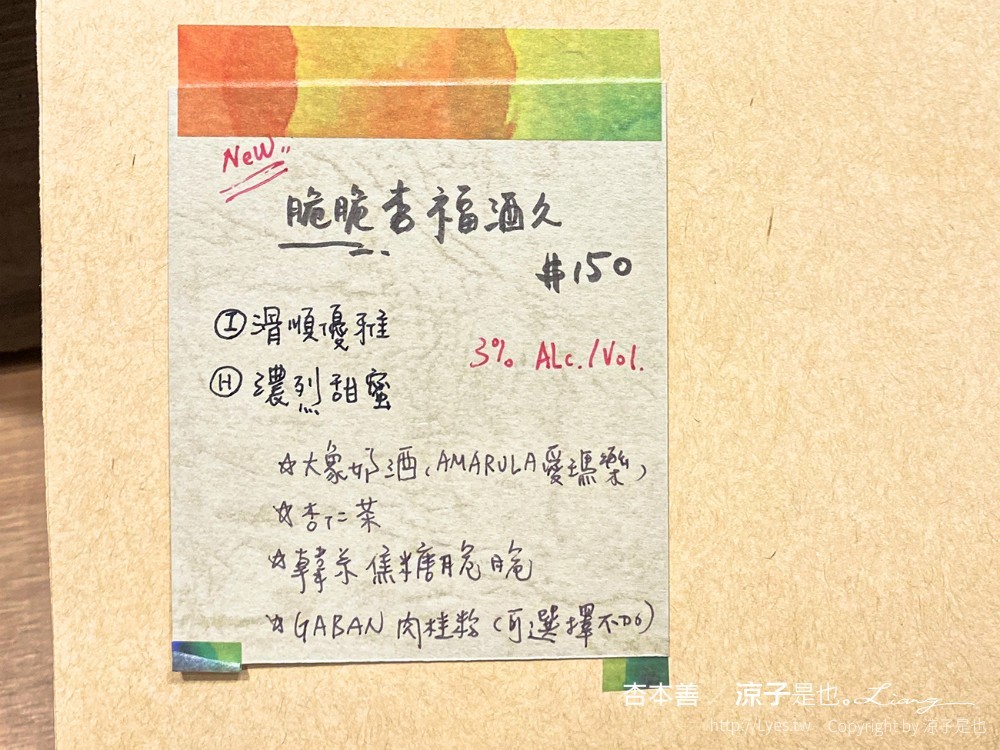 NeW
脆脆杏福酒久
#150
Ⓘ滑順優雅
3% ALc./Vol.
Ⓗ濃烈甜蜜
☆大象奶酒(AMARULA愛瑪樂)
☆杏仁茶
☆韓系焦糖脆脆
☆GABAN 肉桂粉(可選擇不加)
杏本善／涼子是也。Liang
http://Lyes.tw Copyright by 涼子是也